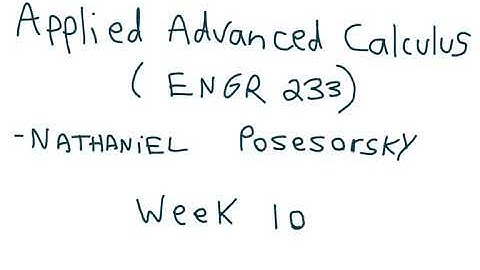 Applied Advanced Calculus
(ENGR 233)
-NATHANiEL Posesorsky
Week 10